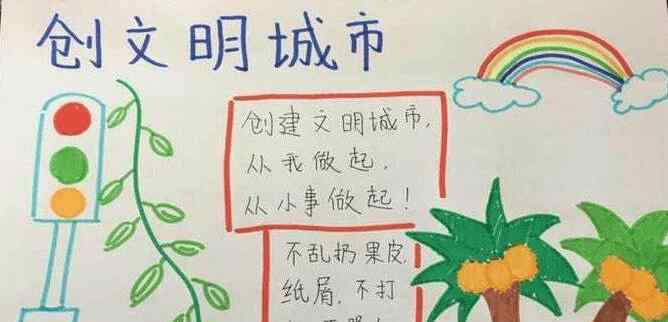 创文明城市
创建文明城市,
从我做起,
从小事做起!
不乱扔果皮,
纸屑,不打